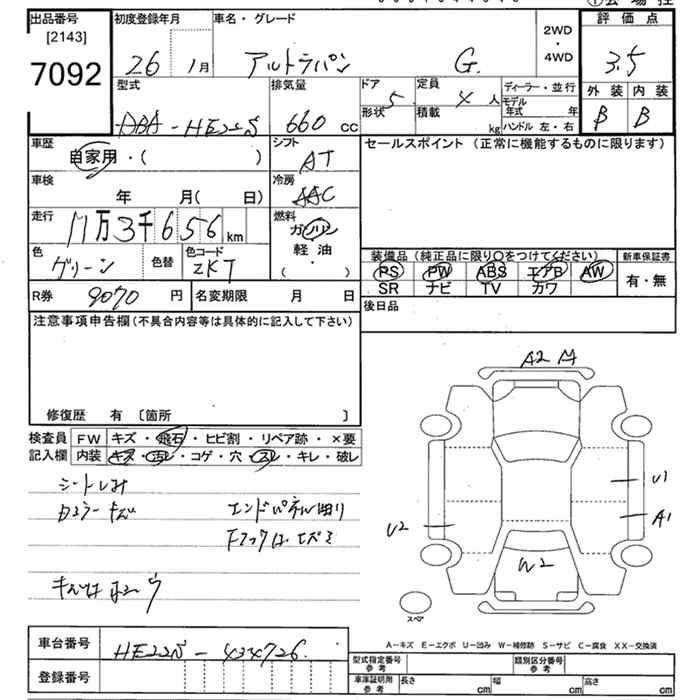 出品番号 初度登録年月 車名・グレード 2WD・4WD 評価点
[2143]
7092
26年 1月 アルトラパン G. 3.5
型式 排気量 ドア 5 定員 4人 ディーラー・並行 外装 内装
形状 積載 kg モデル年式 年
ABA-HE22S 660cc ハンドル 左・右 B B
車歴 シフト セールスポイント (正常に機能するものに限ります)
自家用・( ) AT
車検 冷房
年 月( 日) AAC
走行 燃料
11万3千656km ガソリン
色 色替 色コード 軽油 装備品 (純正品に限り○をつけてください) 新車保証書
グリーン ZKT ( ・ ) PS PW ABS エアB AW 有・無
SR ナビ TV カワ
R券 9070円 名変期限 月 日 後日品
注意事項申告欄 (不具合内容等は具体的に記入して下さい)
A2
修復歴 有 〔箇所 〕
検査員 FW キズ・飛石・ヒビ割・リペア跡・×要
記入欄 内装 キズ・汚レ・コゲ・穴・スレ・キレ・破レ
シートしみ U1
エンドパネル曲り U2 A1
W2
スペア
A-キズ E-エクボ U-凹み W-補修跡 S-サビ C-腐食 XX-交換済
車台番号 HE22S-434726
登録番号 型式指定番号 参考 類別区分番号 参考
車庫証明用 参考 長さ cm 幅 cm 高さ cm